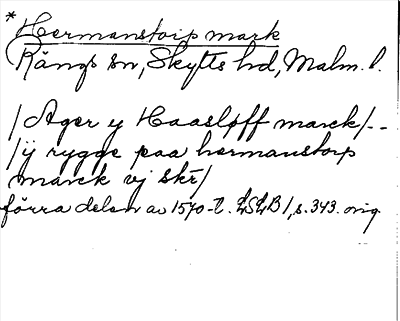 * Hermanstorp mark
Rängs sn, Skytts hd, Malm. l.
/Ager y Haasløff marck/--
/ij rygge paa hermanstorp
marck vj skr/
förra delen av 1570-t. LSLB 1, s. 343. orig.